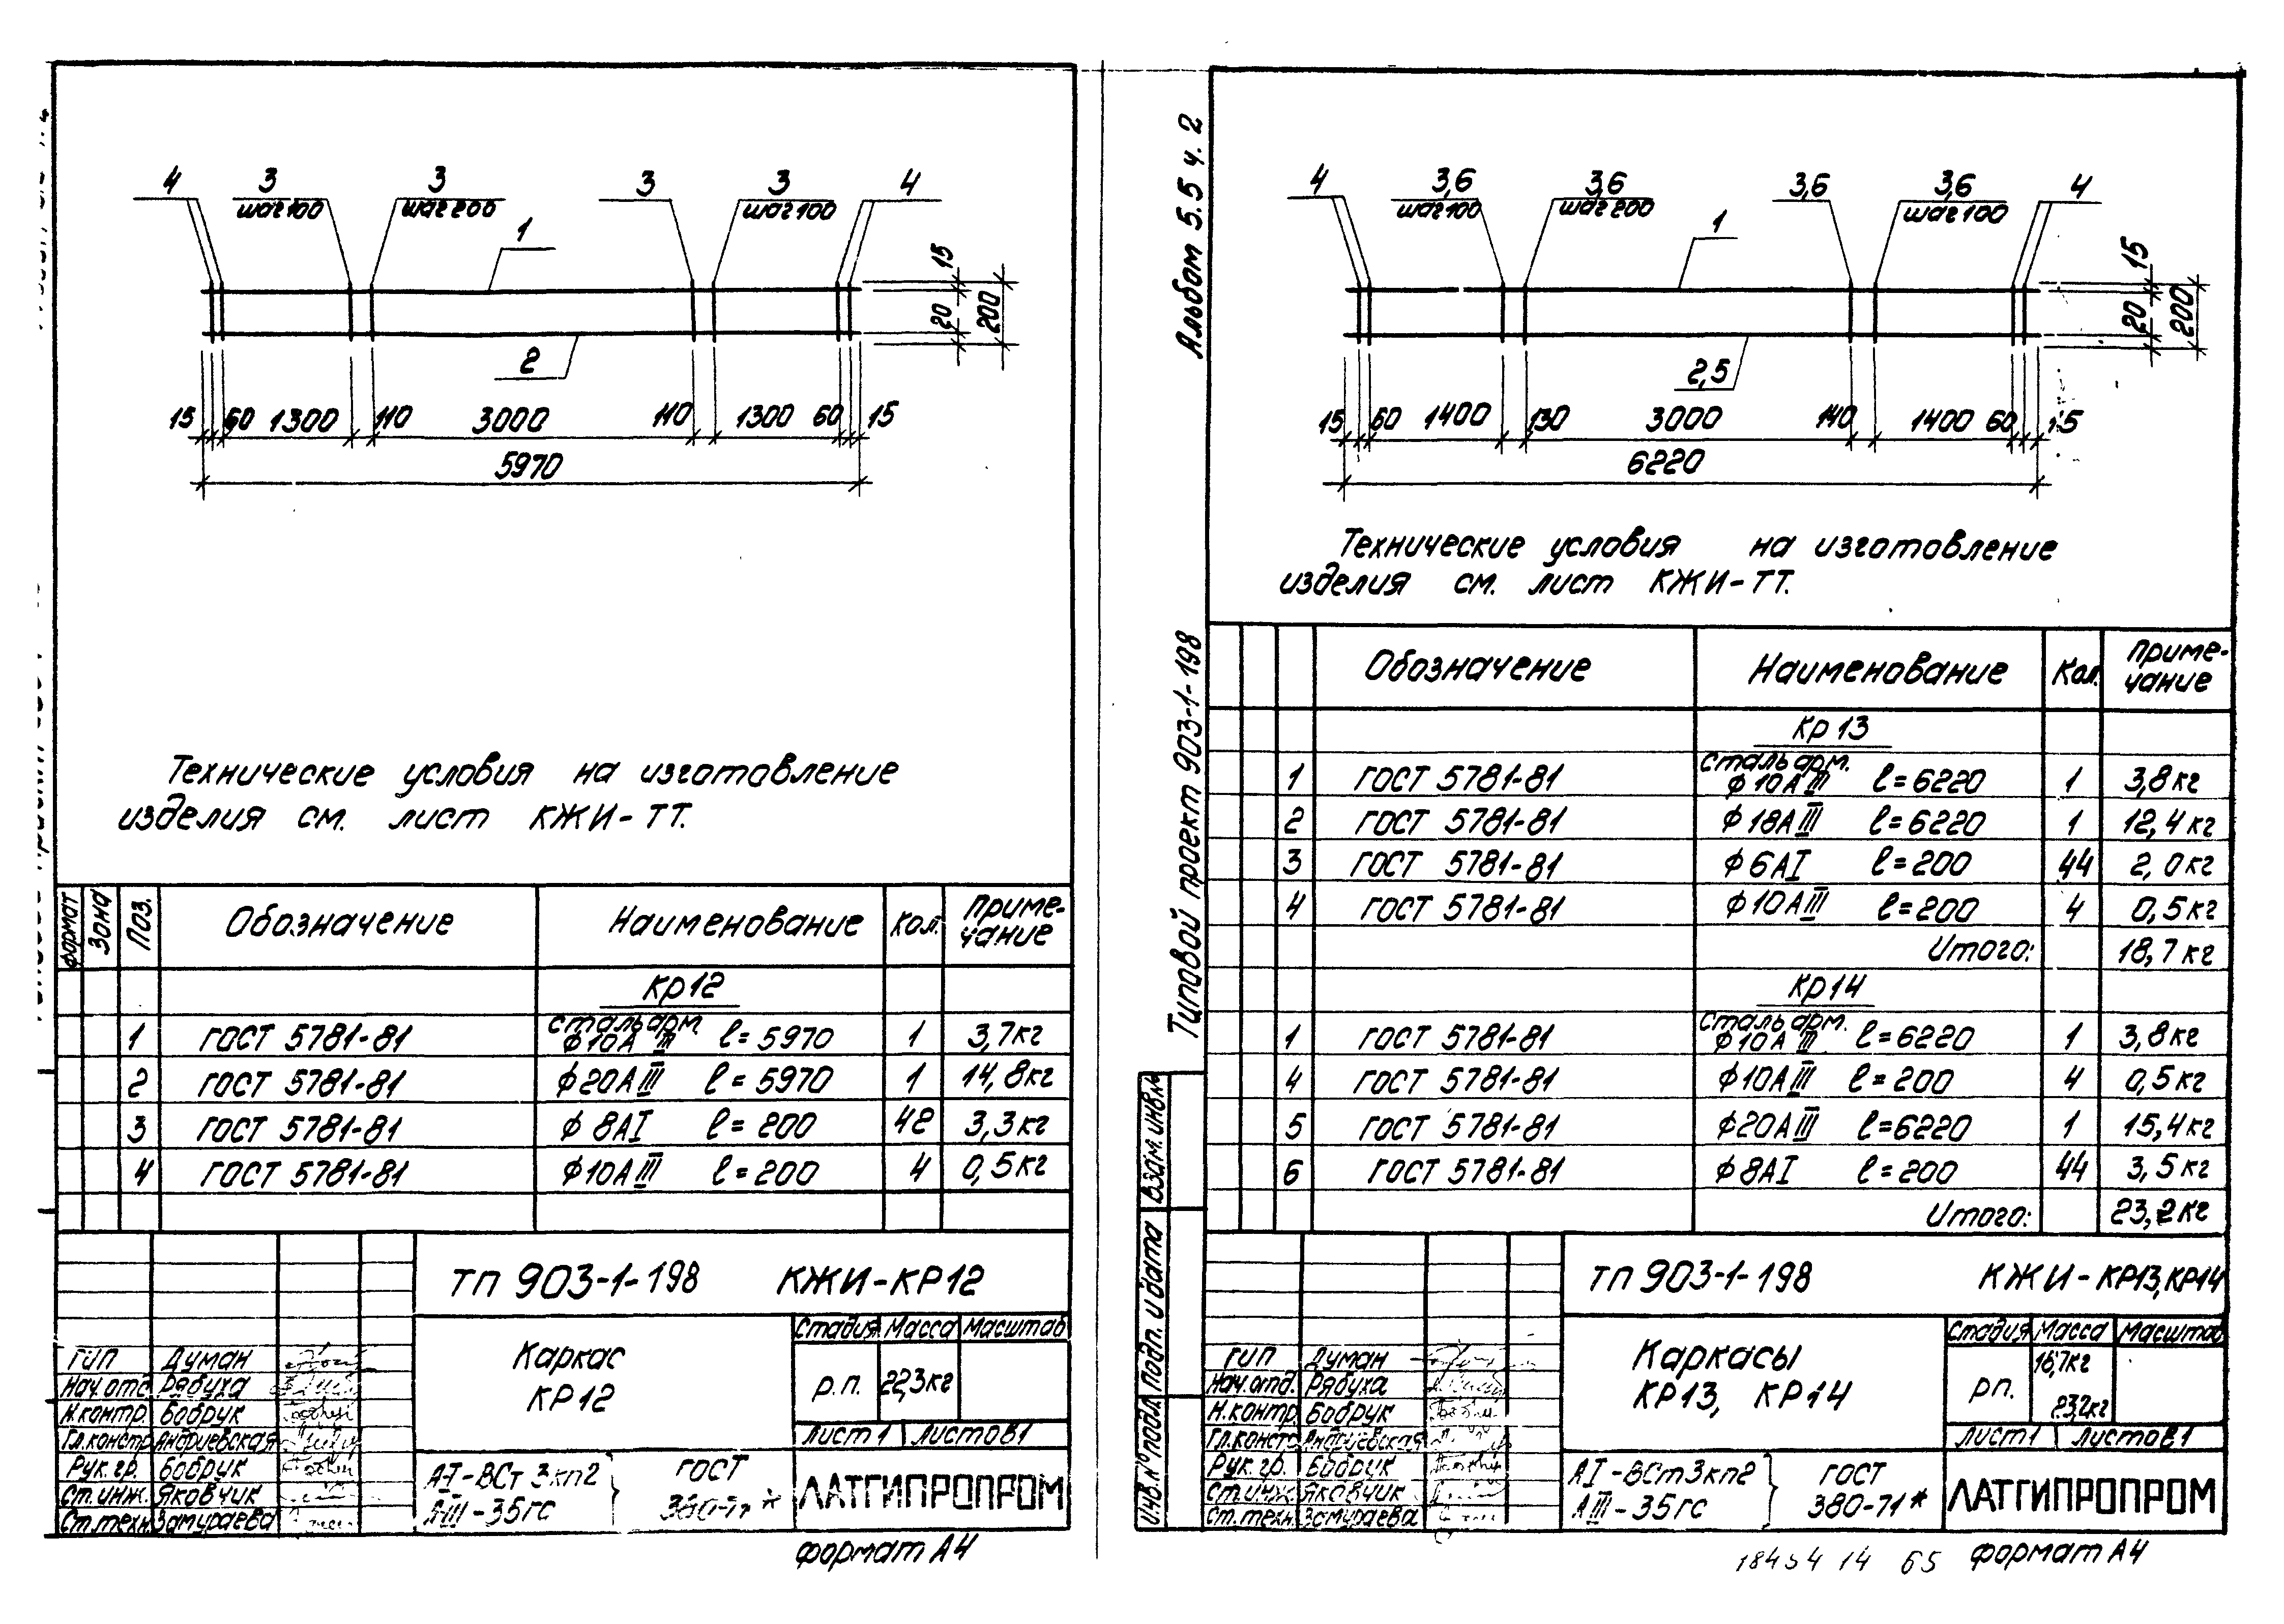 4 3 3 3 3 4
шаг 100 шаг 200 шаг 100
1
15
20 200
2
15 60 1300 110 3000 110 1300 60 15
5970
Технические условия на изготовление
изделия см. лист КЖИ-ТТ.
Формат Зона Поз. Обозначение Наименование Кол. Приме-
чание
Кр12
1 ГОСТ 5781-81 Сталь арм. ϕ10АIII ℓ=5970 1 3,7кг
2 ГОСТ 5781-81 ϕ20АIII ℓ=5970 1 14,8кг
3 ГОСТ 5781-81 ϕ8АI ℓ=200 42 3,3кг
4 ГОСТ 5781-81 ϕ10АIII ℓ=200 4 0,5кг
ТП 903-1-198 КЖИ-КР12
Каркас
КР12
Стадия Масса Масштаб
р.п. 22,3кг
Лист 1 Листов 1
ГИП Думан
Нач.отд Рябуха
Н.контр. Бобрук
Гл.констр Андриевская
Рук.гр. Бобрук
Ст.инж. Яковчик
Ст.техн. Замураева
АI-ВСт 3кп2
АIII-35гс
ГОСТ
380-71*
ЛАТГИПРОПРОМ
Формат А4
Альбом 5.5 ч. 2
Типовой проект 903-1-198
Взам.инв.№
Подп. и дата
Инв.№ подл.
4 3,6 3,6 3,6 3,6 4
шаг 100 шаг 200 шаг 100
1
15
20 200
2,5
15 60 1400 130 3000 140 1400 60 15
6220
Технические условия на изготовление
изделия см. лист КЖИ-ТТ.
Обозначение Наименование Кол. Приме-
чание
Кр13
1 ГОСТ 5781-81 Сталь арм. ϕ10АIII ℓ=6220 1 3,8кг
2 ГОСТ 5781-81 ϕ18АIII ℓ=6220 1 12,4кг
3 ГОСТ 5781-81 ϕ6АI ℓ=200 44 2,0кг
4 ГОСТ 5781-81 ϕ10АIII ℓ=200 4 0,5кг
Итого: 18,7кг
Кр14
1 ГОСТ 5781-81 Сталь арм. ϕ10АIII ℓ=6220 1 3,8кг
4 ГОСТ 5781-81 ϕ10АIII ℓ=200 4 0,5кг
5 ГОСТ 5781-81 ϕ20АIII ℓ=6220 1 15,4кг
6 ГОСТ 5781-81 ϕ8АI ℓ=200 44 3,5кг
Итого: 23,2кг
ТП 903-1-198 КЖИ-КР13,КР14
Каркасы
КР13, КР14
Стадия Масса Масштаб
рп. 23,2кг
Лист 1 Листов 1
ГИП Думан
Нач.отд. Рябуха
Н.контр. Бобрук
Гл.констр Андриевская
Рук.гр. Бобрук
Ст.инж. Яковчик
Ст.техн. Замураева
АI-ВСт3кп2
АIII-35гс
ГОСТ
380-71*
ЛАТГИПРОПРОМ
14 65 Формат А4